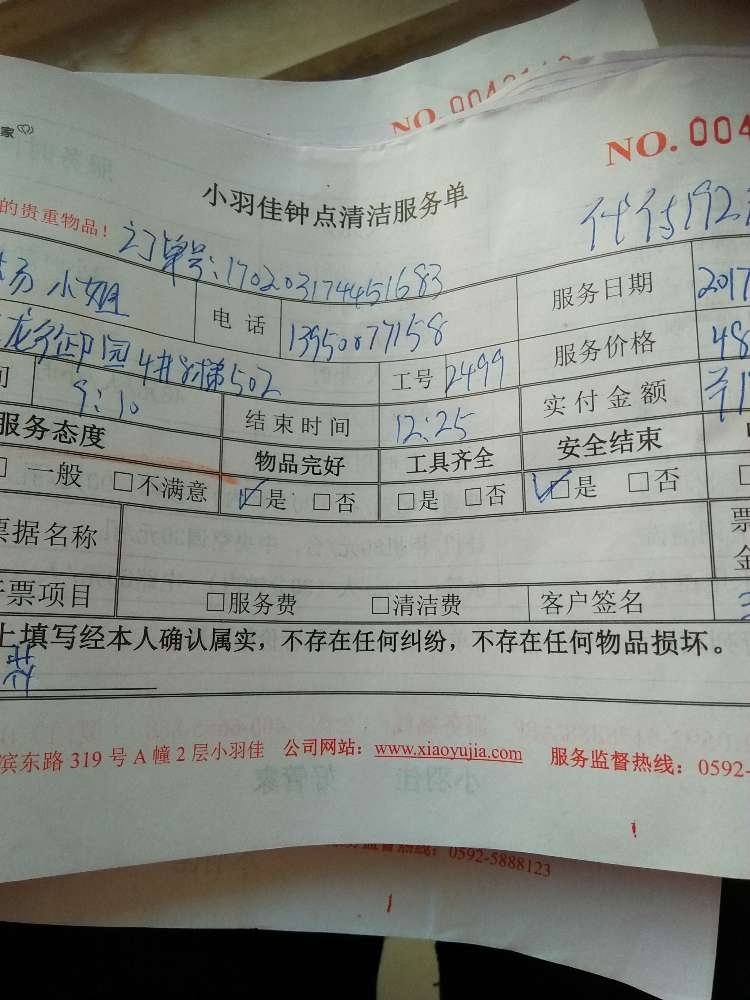 NO.
家
NO. 004
的贵重物品！
小羽佳钟点清洁服务单
订单号：1702031744451683
代付192
小姐
电话
13950077158
服务日期
2017
御园4#8梯502
工号
2499
服务价格
48
9:10
结束时间
12:25
实付金额
服务态度
物品完好
工具齐全
安全结束
□一般 □不满意 □是 □否 □是 □否 □是 □否
票据名称
票
开票项目
□服务费 □清洁费
客户签名
上填写经本人确认属实，不存在任何纠纷，不存在任何物品损坏。
滨东路 319 号 A 幢 2 层小羽佳 公司网站：www.xiaoyujia.com 服务监督热线：0592-
监督热线：0592-5888123